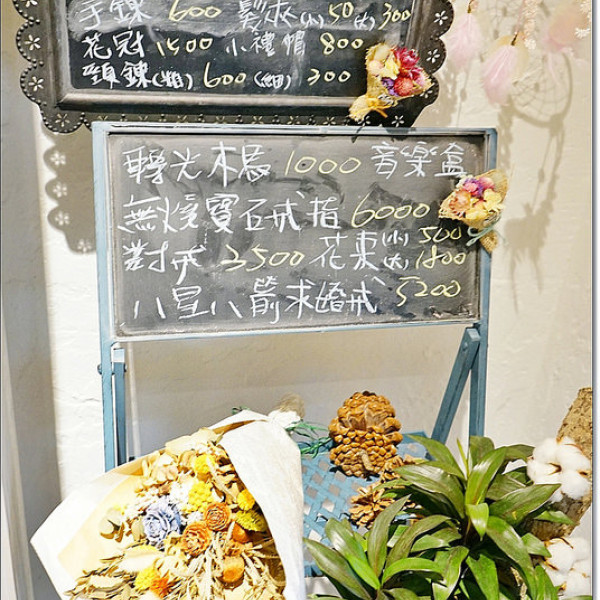 手鍊 600 髮夾(小)50(大)300
花冠 1500 小禮帽 800
頸鍊(粗)600(細)300
聖光木馬 1000 音樂盒
無燒寶石戒指 6000
對戒 3500 花束(小)500(大)1800
八星八箭求婚戒 5200